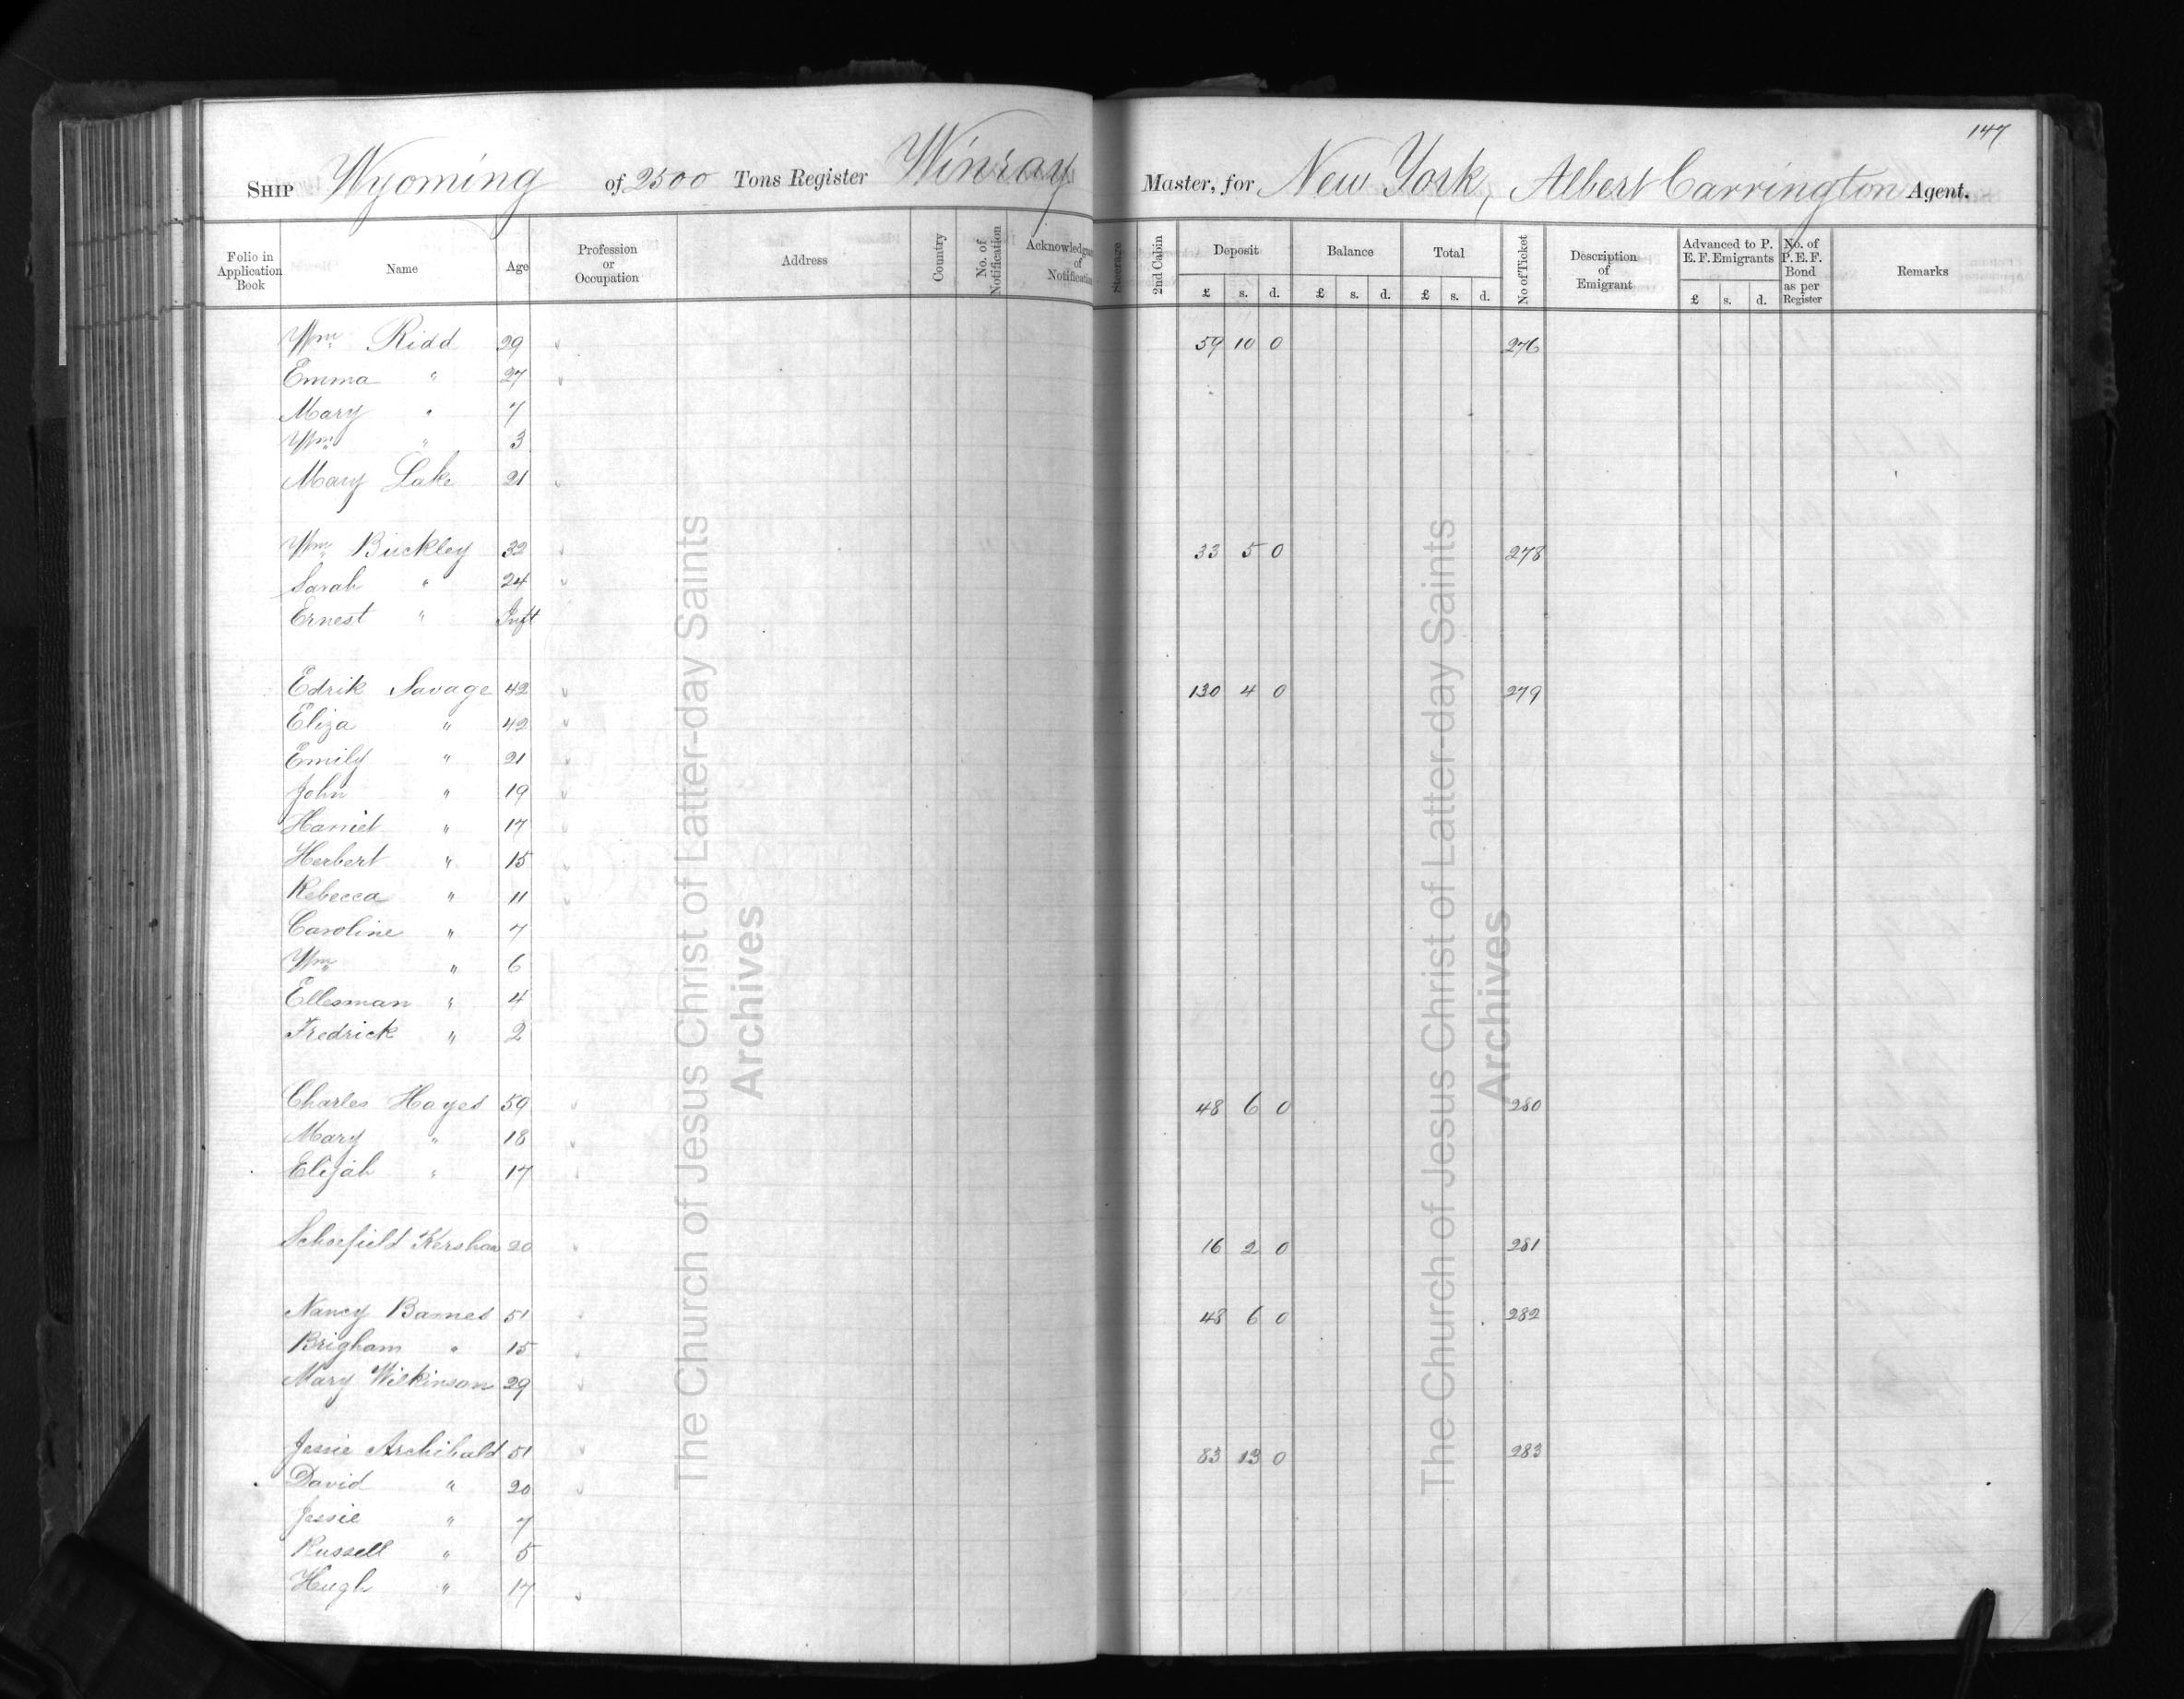 147
SHIP Wyoming of 2500 Tons Register Winray Master, for New York, Albert Carrington Agent.
Folio in Application Book Name Age Profession or Occupation Address Country No. of Notification Acknowledgm of Notification Steerage 2nd Cabin Deposit £ s. d. Balance £ s. d. Total £ s. d. No of Ticket Description of Emigrant Advanced to P. E. F. Emigrants £ s. d. No. of P. E. F. Bond as per Register Remarks
Wm Ridd 29 59 10 0 276
Emma " 27
Mary " 7
Wm " 3
Mary Lake 21
Wm Buckley 32 33 5 0 278
Sarah " 24
Ernest " Inft
Edrik Savage 42 130 4 0 279
Eliza " 42
Emily " 21
John " 19
Harriet " 17
Herbert " 15
Rebecca " 11
Caroline " 7
Wm " 6
Ellesman " 4
Fredrick " 2
Charles Hayes 59 48 6 0 280
Mary " 18
Elijah " 17
Schofield Kershaw 20 16 2 0 281
Nancy Barnes 51 48 6 0 282
Brigham " 15
Mary Wilkinson 29
Jessie Archibald 51 83 13 0 283
David " 20
Jessie " 7
Russell " 5
Hugh " 17
The Church of Jesus Christ of Latter-day Saints
Archives
The Church of Jesus Christ of Latter-day Saints
Archives